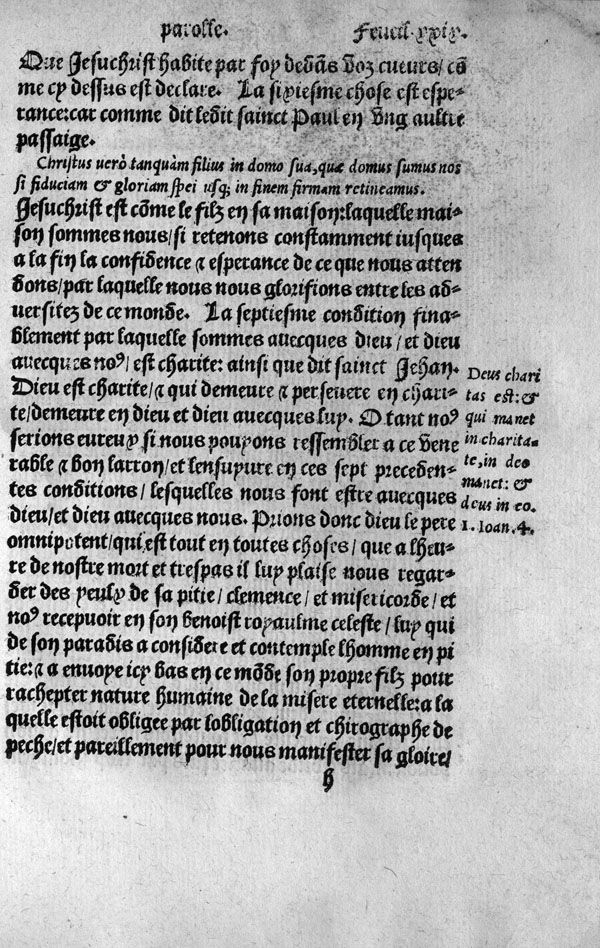 parolle. Feueil.xxix.
Que Jesuchrist habite par foy devãs voz cueurs/cõ
me cy dessus est declare. La sixiesme chose est espe-
rance:car comme dit ledit sainct Paul en ung aultre
passaige.
Christus verò tanquàm filius in domo sua, quæ domus sumus nos
si fiduciam & gloriam spei usq; in finem firmam retineamus.
Jesuchrist est cõme le filz en sa maison:laquelle mai-
son sommes nous/si retenons constamment iusques
a la fin la confidence ⁊ esperance de ce que nous atten
dons/par laquelle nous nous glorifions entre les ad-
versitez de ce monde. La septiesme condition fina-
blement par laquelle sommes avecques dieu/et dieu
avecques noꝰ/est charite: ainsi que dit sainct Jehan.
Dieu est charite/⁊ qui demeure ⁊ persevere en chari-
te/demeure en dieu et dieu avecques luy. O tant noꝰ
serions eureux si nous pouyons ressembler a ce vene
rable ⁊ bon larron/et lensuyure en ces sept preceden-
tes conditions/lesquelles nous font estre avecques
dieu/et dieu avecques nous. Prions donc dieu le pere
omnipotent/qui est tout en toutes choses/que a lheu-
re de nostre mort et trespas il luy plaise nous regar-
der des yeulx de sa pitie/clemence/et misericorde/et
noꝰ recepuoir en son benoist royaulme celeste/luy qui
de son paradis a considere et contemple lhomme en pi
tie:⁊ a envoye icy bas en ce mõde son propre filz pour
rachepter nature humaine de la misere eternelle:a la
quelle estoit obligee par lobligation et chirographe de
peche/et pareillement pour nous manifester sa gloire/
h
Deus chari
tas est: &
qui manet
in charita-
te, in deo
manet: &
deus in eo.
1. Ioan. 4.